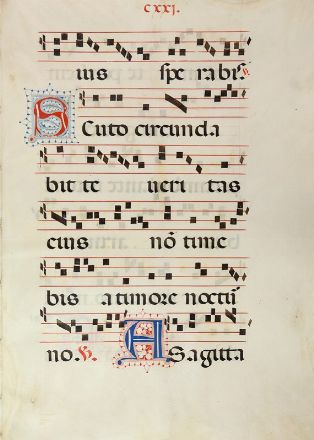 cxxj.
ius spe rabis. ℣.
Scuto circunda
bit te ueri tas
eius nõ time
bis a timore noctũ
no. ℣. A Sagitta